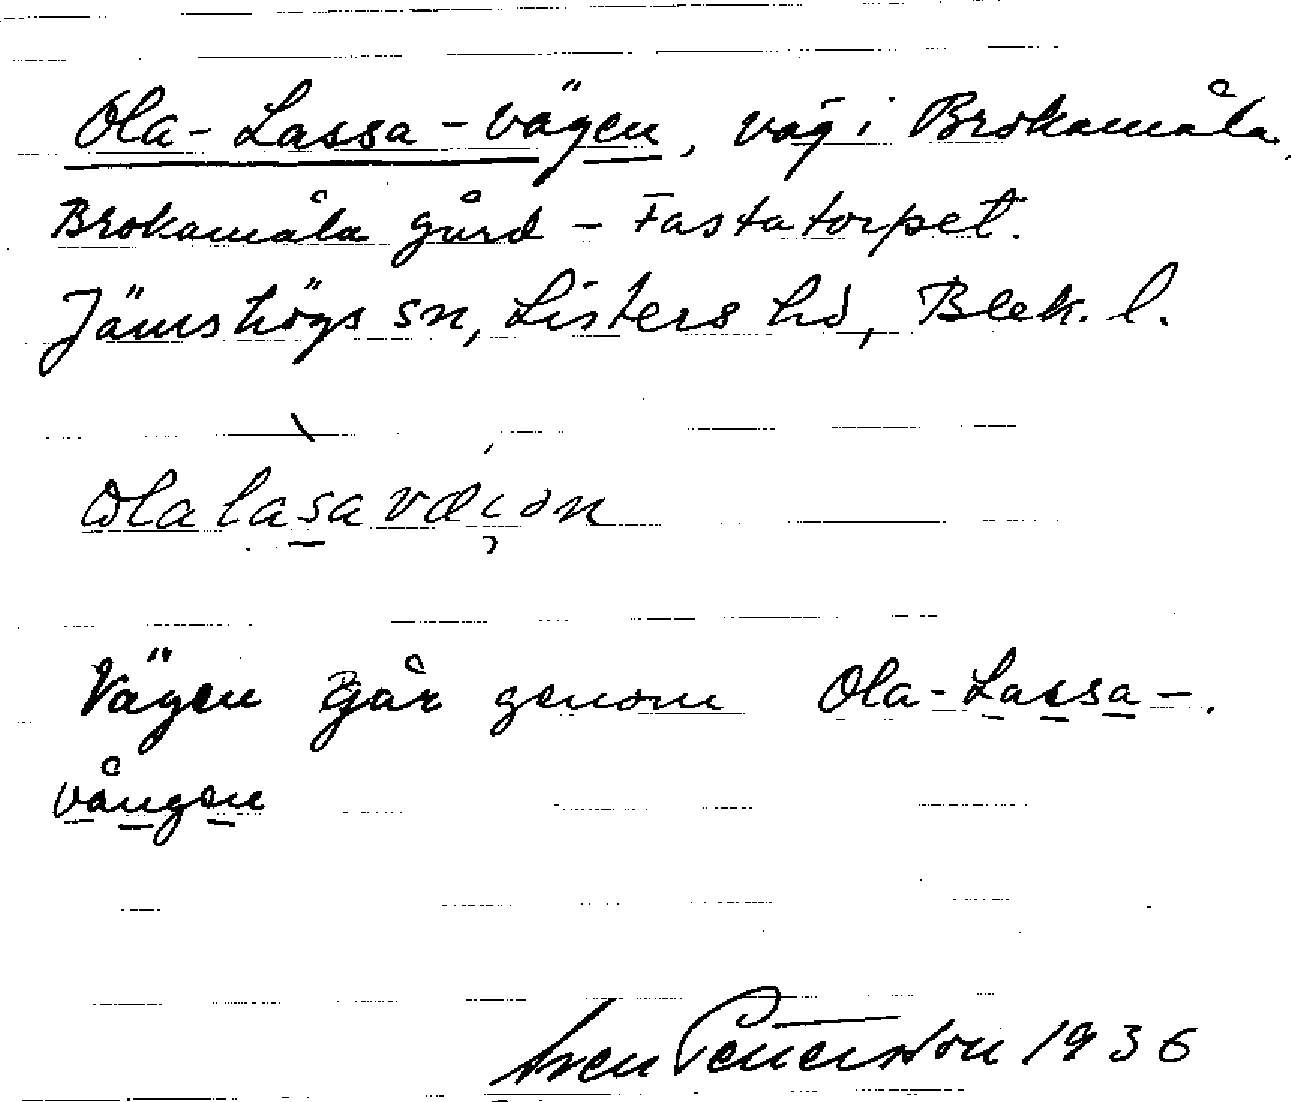 Ola-Lassa-vägen, väg i Brokamåla,
Brokamåla gård - Fastatorpet.
Jämshögs sn, Listers hd, Blek. l.
Vägen går genom Ola-Lassa-
vången
Sven Pettersson 1936